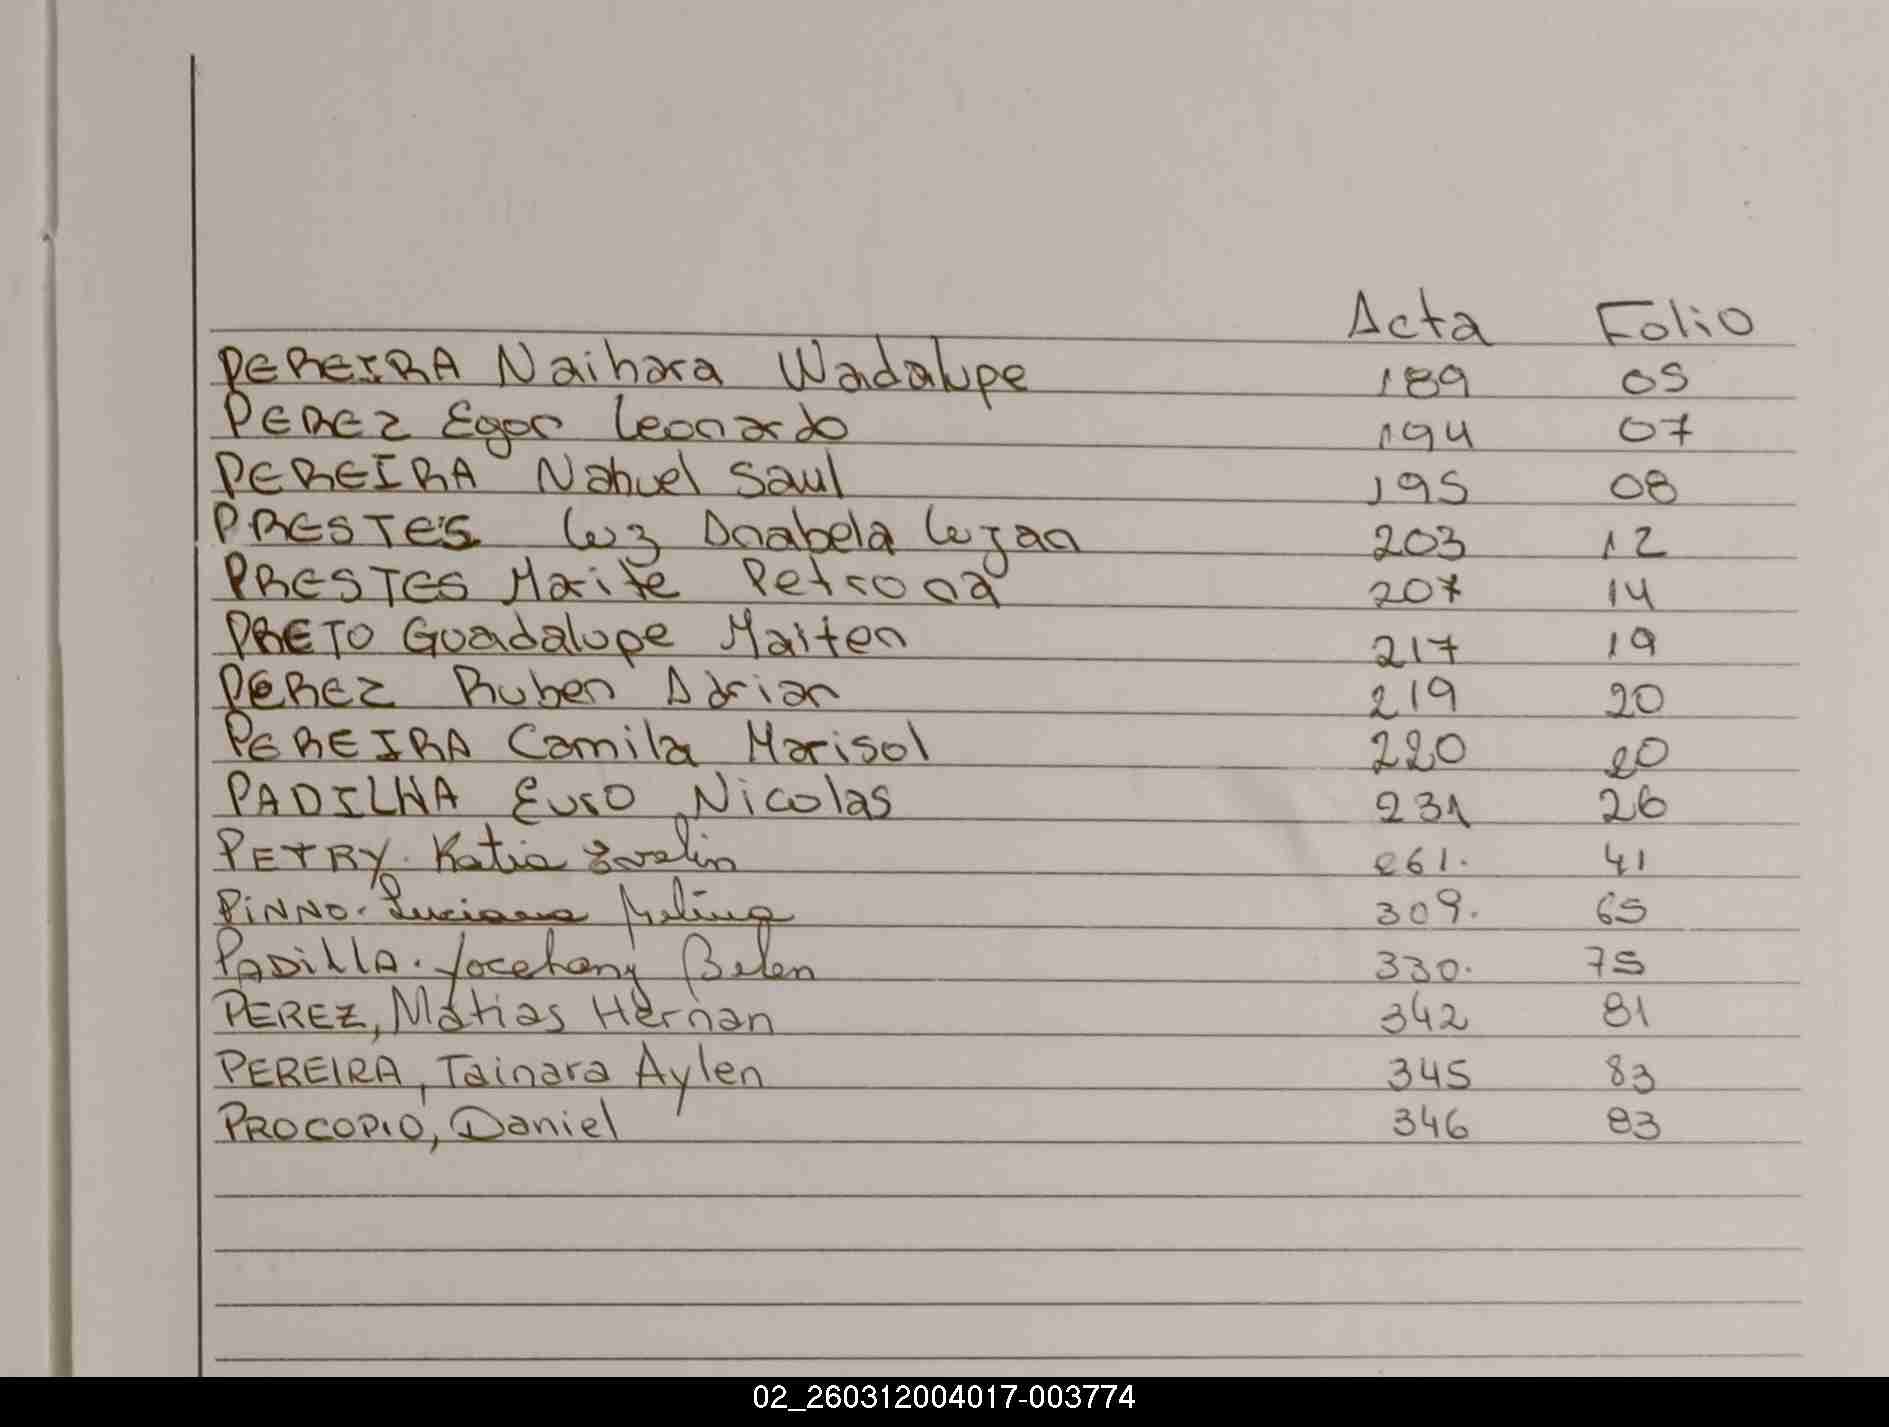 Acta Folio
PEREIRA Naihara Wadalupe 189 05
PEREZ Egor Leonardo 194 07
PEREIRA Nahuel Saul 195 08
PRESTES Luz Anabela Lujan 203 12
PRESTES Maite Petrona 207 14
PRETO Guadalupe Maiten 217 19
PEREZ Ruben Adrian 219 20
PEREIRA Camila Marisol 220 20
PADILHA Euro Nicolas 231 26
PETRY. Katia Evelin 261. 41
PINNO. Luciana Melina 309. 65
PADILLA. Jocehany Belen 330. 75
PEREZ, Matias Hernan 342 81
PEREIRA, Tainara Aylen 345 83
PROCOPIO, Daniel 346 83
02_260312004017-003774